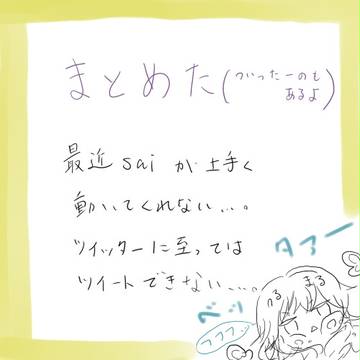 まとめた(ついったーのも
あるよ)
最近saiが上手く
動いてくれない...。
ツイッターに至っては
ツイートできない...。
タァー
フフフ..